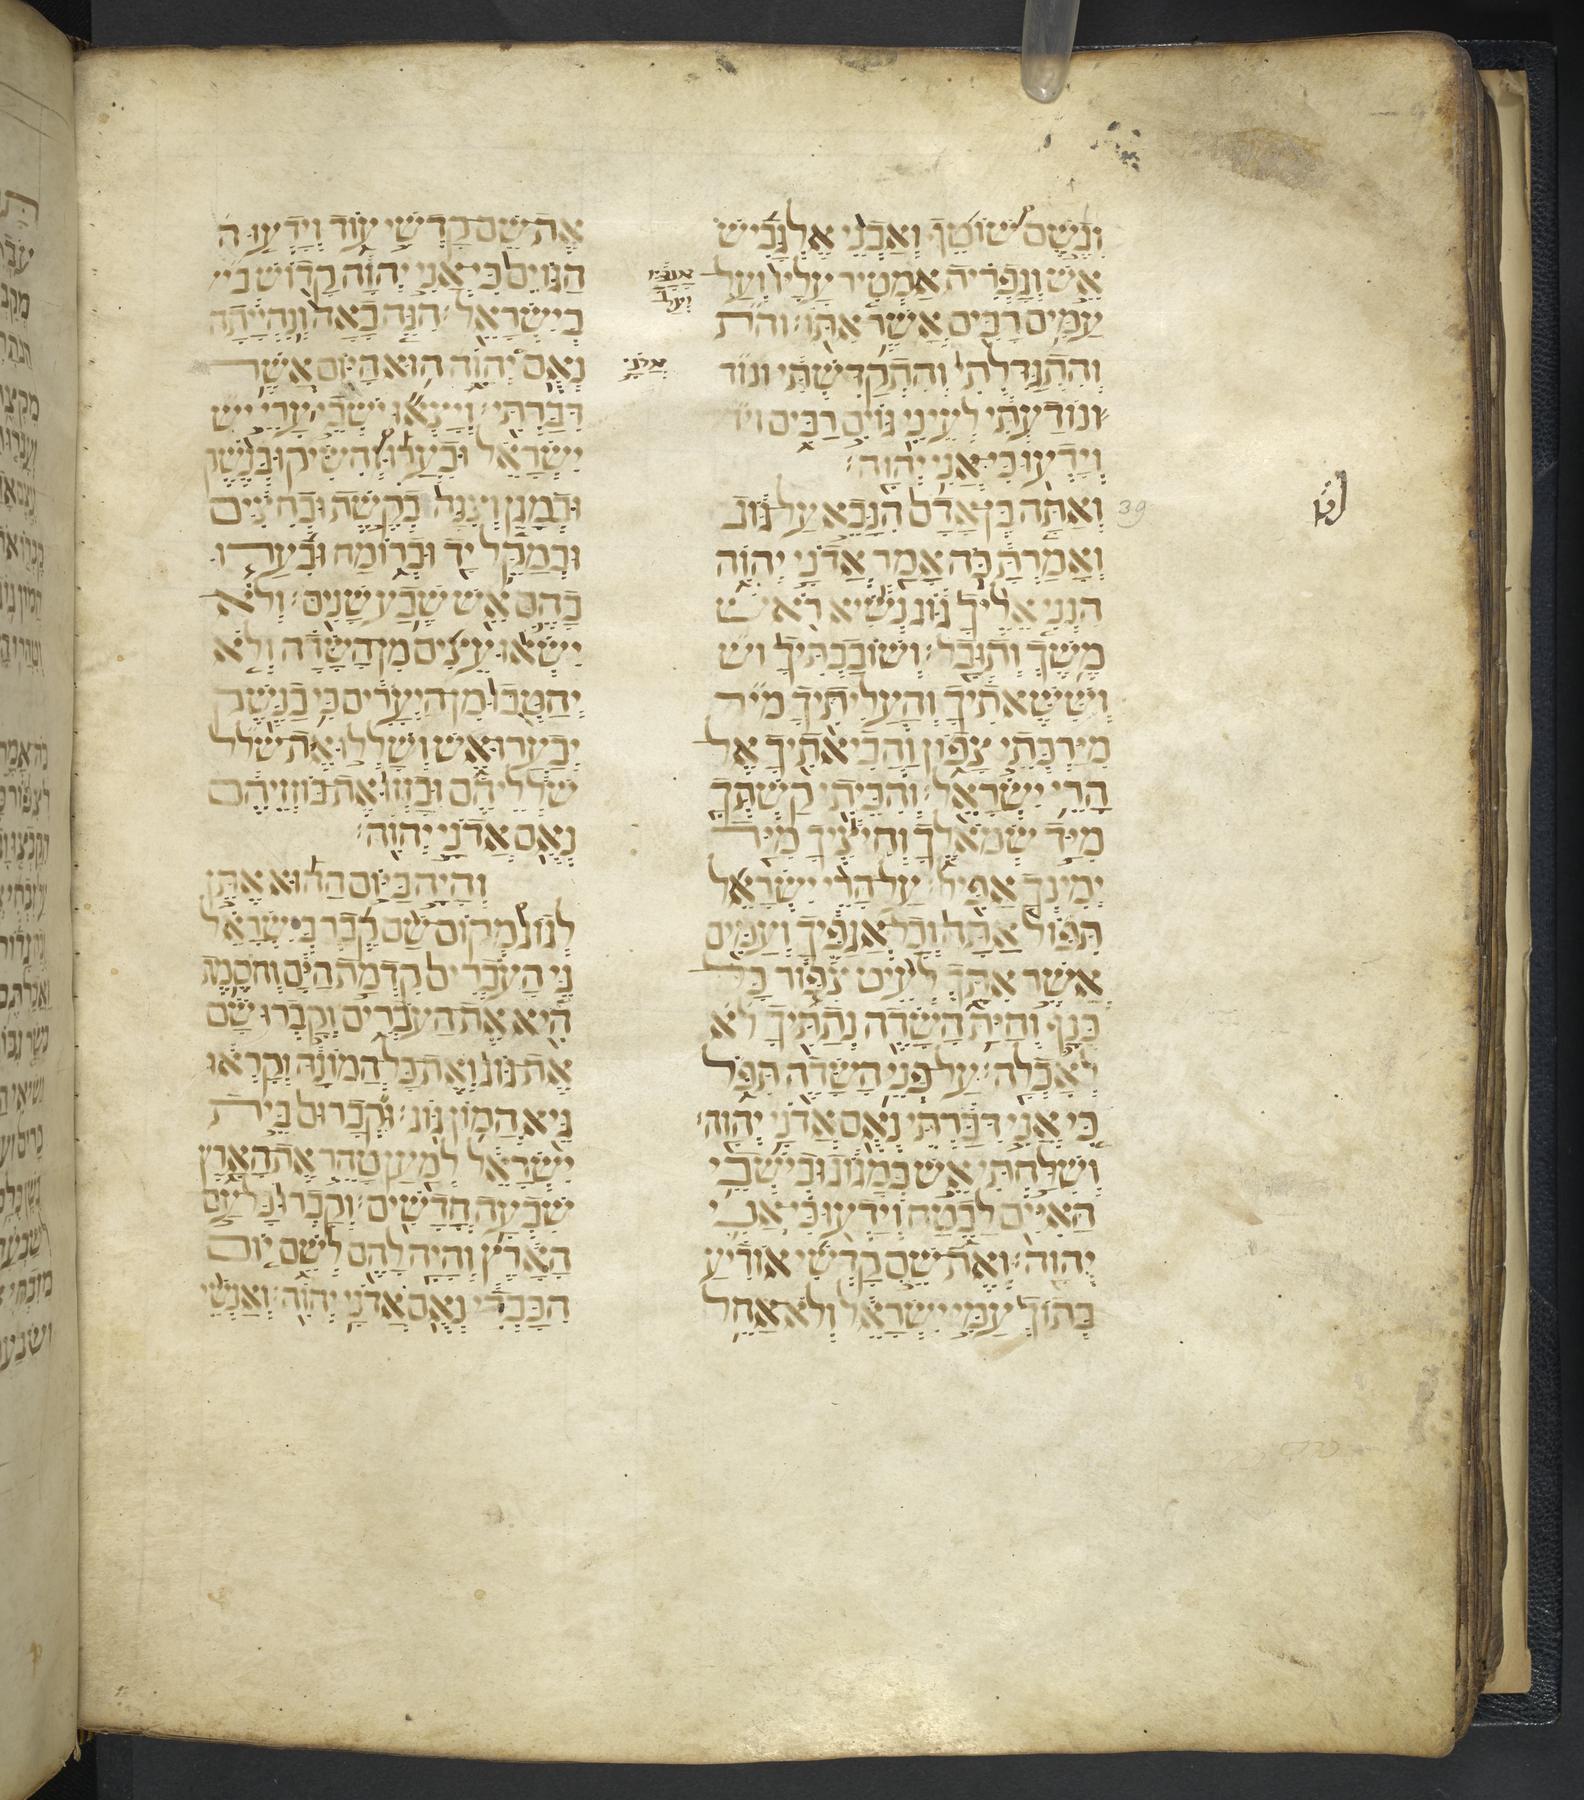 וגשם שוטף ואבני אלגביש
אש וגפרית אמטיר עליו ועל
עמים רבים אשר אתו והת
והתגדלתי והתקדשתי ונוד
ונודעתי לעיני גוים רבים וי
וידעו כי אני יהוה
ואתה בן אדם הנבא על גוג
ואמרת כה אמר אדני יהוה
הנני אליך גוג נשיא ראש
משך ותובל ושובבתיך וש
וששאתיך והעליתיך מיר
מירכתי צפון והביאתיך אל
הרי ישראל והכיתי קשתך
מיד שמאלך וחיציך מיד
ימינך אפיל על הרי ישראל
תפול אתה וכל אגפיך ועמים
אשר אתך לעיט צפור כל
כנף וחית השדה נתתיך לא
לאכלה על פני השדה תפל
כי אני דברתי נאם אדני יהוה
ושלחתי אש במגוג ובישבי
האיים לבטח וידעו כי אני
יהוה ואת שם קדשי אודיע
בתוך עמי ישראל ולא אחל
39
את שם קדשי עוד וידעו ה
הגוים כי אני יהוה קדוש בי
בישראל הנה באה ונהייתה
נאם יהוה הוא היום אשר
דברתי ויצאו ישבי ערי יש
ישראל ובערו והשיקו בנשק
ומגן וצנה בקשת ובחצים
ובמקל יד וברומח ובערו
בהם אש שבע שנים ולא
ישאו עצים מן השדה ולא
יחטבו מן היערים כי בנשק
יבערו אש ושללו את שלל
שלליהם ובזזו את בוזזיהם
נאם אדני יהוה
והיה ביום ההוא אתן
לגוג מקום שם קבר בישראל
גי העברים קדמת הים וחסמת
היא את העברים וקברו שם
את גוג ואת כל המונה וקראו
גיא המון גוג וקברום בית
ישראל למען טהר את הארץ
שבעה חדשים וקברו כל עם
הארץ והיה להם לשם יום
הכבדי נאם אדני יהוה ואנשי